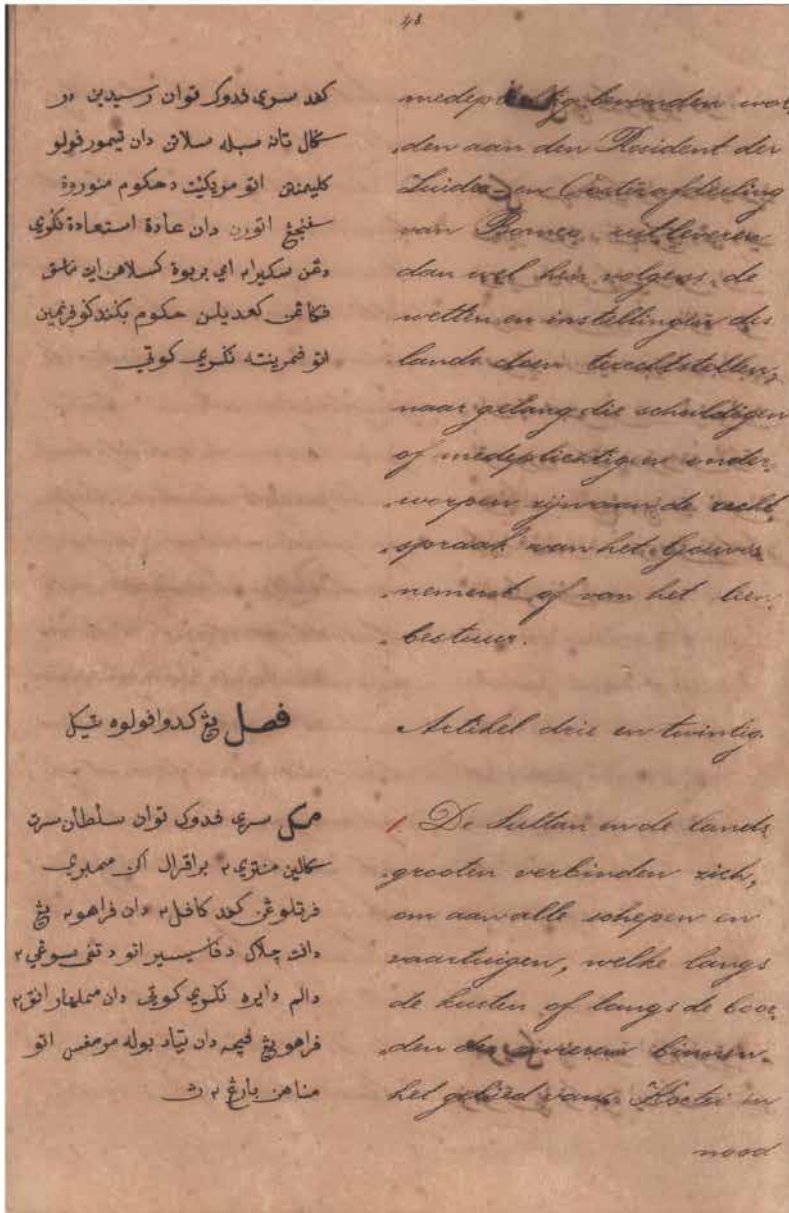 48
كفد سري فدوك توان رسيدين در
سكال تانه سبله سلاتن دان تيمور فولو
كليمنتن اتو مريكئت دحكوم منوروة
سفنجڠ اتورن دان عادة استعادة نكري
دڠن سكيرا بربوة كسلاهن اين ماسق
فكاڠن كعديلن حكوم بكند كوفرنمين
اتو فمرينته نكري كوتي
فصل يڠ كدوافولوه تيݢ
مك سري فدوك توان سلطان سرت
سكالين منتري٢ براقرال اكن ممبري
فرتلوڠن كفد كافل٢ دان فراهو٢ يڠ
دافت چلاك دفاسيسير اتو دتفي سوڠي٢
دالم دايره نكري كوتي دان مملهارا انق٢
فراهو يڠ فچه دان تياد بوله مرمفس اتو
مناهن بارڠ٢ ث
medeplichtig bevonden wor-
den aan den Resident der
Zuider- en Oosterafdeeling
van Borneo uitleveren
dan wel hen volgens de
wetten en instellingen des
lands doen terechtstellen,
naar gelang die schuldigen
of medeplichtigen onder-
worpen zijn aan de recht-
spraak van het Gouver-
nement of van het leen-
bestuur.
Artikel drie en twintig.
De Sultan en de lands-
grooten verbinden zich,
om aan alle schepen en
vaartuigen, welke langs
de kusten of langs de boor-
den der rivieren binnen
het gebied van Koetei in
nood